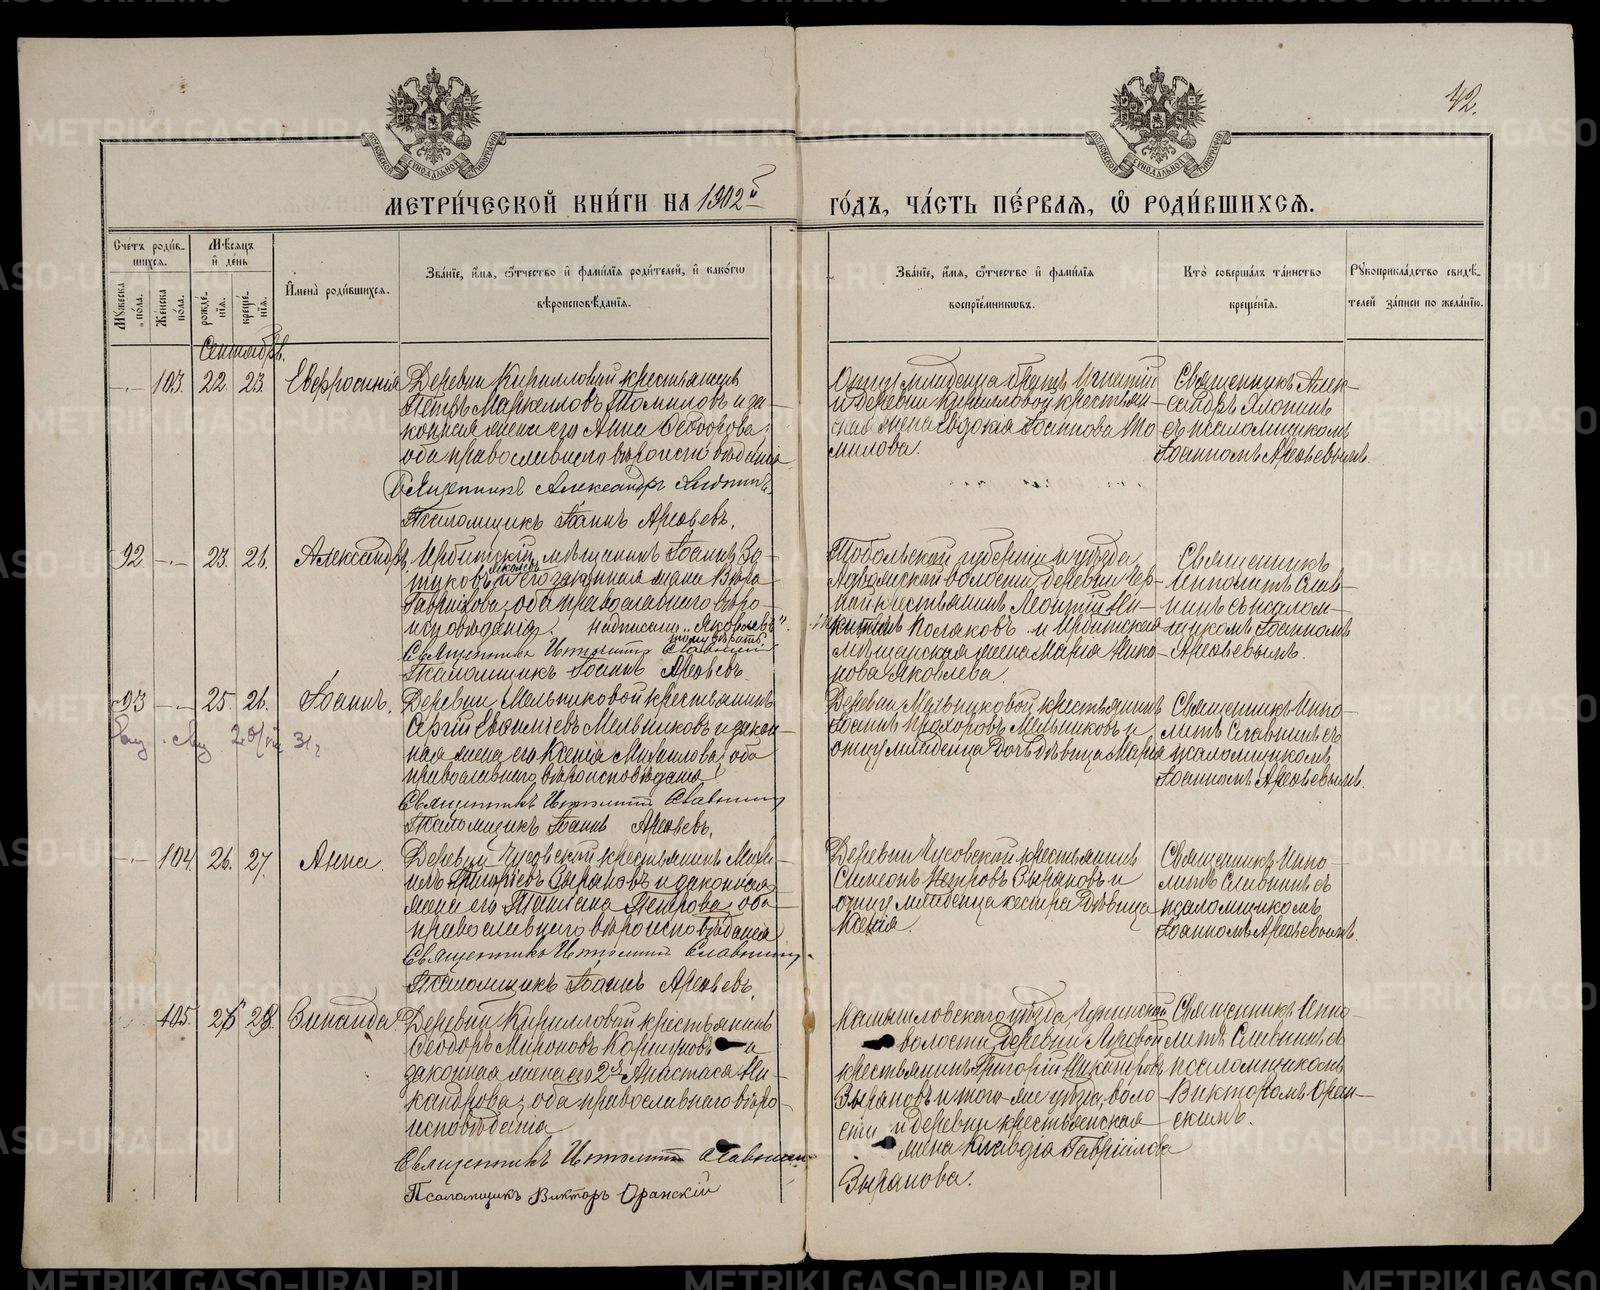 42.
МЕТРИ́ЧЕСКОЙ КНИ́ГИ НА 1902й ГО́ДЪ, ЧА́СТЬ ПЕ́РВАЯ, Ѡ РОДИ́ВШИХСЯ.
Сче́тъ роди́вшихся.
Мѣсяцъ и де́нь
Му́жеска по́ла.
Же́нска по́ла.
рожде́нїя.
креще́нїя.
И҆мена̀ роди́вшихся.
Зва́нїе, и҆́мя, ѻ҆́тчество и҆ фами́лїя роди́телей, и҆ како́гѡ
вѣроисповѣ́данїя.
Зва́нїе, и҆́мя, ѻ҆́тчество и҆ фами́лїя
воспрїе́мниковъ.
Кто̀ соверша́лъ та́инство
креще́нїя.
Рꙋкоприкла́дство свидѣ́-
телей за́писи по жела́нїю.
Сентябрь.
103. 22. 23. Евфросинія
Деревни Кирилловой крестьянинъ
Петръ Маркелловъ Томиловъ и за-
конная жена его Анна Ѳеодорова,
оба православнаго вѣроисповѣданія
Священникъ Александръ Хлопинъ
Псаломщикъ Іоаннъ Арефьевъ.
Отца младенца братъ Игнатій
и деревни Кирилловой крестьян-
ская жена Евдокія Іоаннова То-
милова.
Священникъ Алек-
сандръ Хлопинъ
съ псаломщикомъ
Іоанномъ Арефьевымъ.
92 23. 26. Александръ
Ирбитскій мѣщанинъ Іоаннъ
и его законная жена Вѣра
Гаврилова, оба православнаго вѣро-
исповѣданія. надписано "Яковлевъ".
Священникъ Ипполитъ Славнинъ
Псаломщикъ Іоаннъ Арефьевъ.
Тобольской губерніи и уѣзда
волости, деревни Чер-
ной крестьянинъ Леонтій Ни-
китинъ Поляковъ и Ирбитская
мѣщанская жена Марія Нико-
нова Яковлева.
Священникъ
Ипполитъ Слав-
нинъ съ псалом-
щикомъ Іоанномъ
Арефьевымъ.
93 25. 26. Іоаннъ.
Деревни Мельниковой крестьянинъ
Сергій Евѳиміевъ Мельниковъ и закон-
ная жена его Ксенія Михаилова, оба
православнаго вѣроисповѣданія
Священникъ Ипполитъ Славнинъ
Псаломщикъ Іоаннъ Арефьевъ.
Деревни Мельниковой крестьянинъ
Іоаннъ Прохоровъ Мельниковъ и
отца младенца дочь дѣвица Марія
Священникъ Иппо-
литъ Славнинъ съ
псаломщикомъ
Іоанномъ Арефьевымъ.
104. 26. 27. Анна.
Деревни Чусовской крестьянинъ Миха-
илъ Григорьевъ Зыряновъ и законная
жена его Татіана Петрова, оба
православнаго вѣроисповѣданія
Священникъ Ипполитъ Славнинъ
Псаломщикъ Іоаннъ Арефьевъ.
Деревни Чусовской крестьянинъ
Симеонъ Петровъ Зыряновъ и
отца младенца сестра дѣвица
Ксенія.
Священникъ Иппо-
литъ Славнинъ съ
псаломщикомъ
Іоанномъ Арефьевымъ.
105. 28. Зинаида
Деревни Кирилловой крестьянинъ
Ѳеодоръ Мироновъ и
законная жена его 2я Анастасія Ни-
кандрова, оба православнаго вѣро-
исповѣданія
Священникъ Ипполитъ Славнинъ
Псаломщикъ Викторъ Оранскій
Камышловскаго уѣзда,
волости, деревни
крестьянинъ Григорій Никандровъ
Зыряновъ и того-же уѣзда, воло-
сти и деревни крестьянская
жена Клавдія Гавріилова
Зырянова.
Священникъ Иппо-
литъ Славнинъ съ
псаломщикомъ
Викторомъ Оран-
скимъ.
METRIKI.GASO-URAL.RU